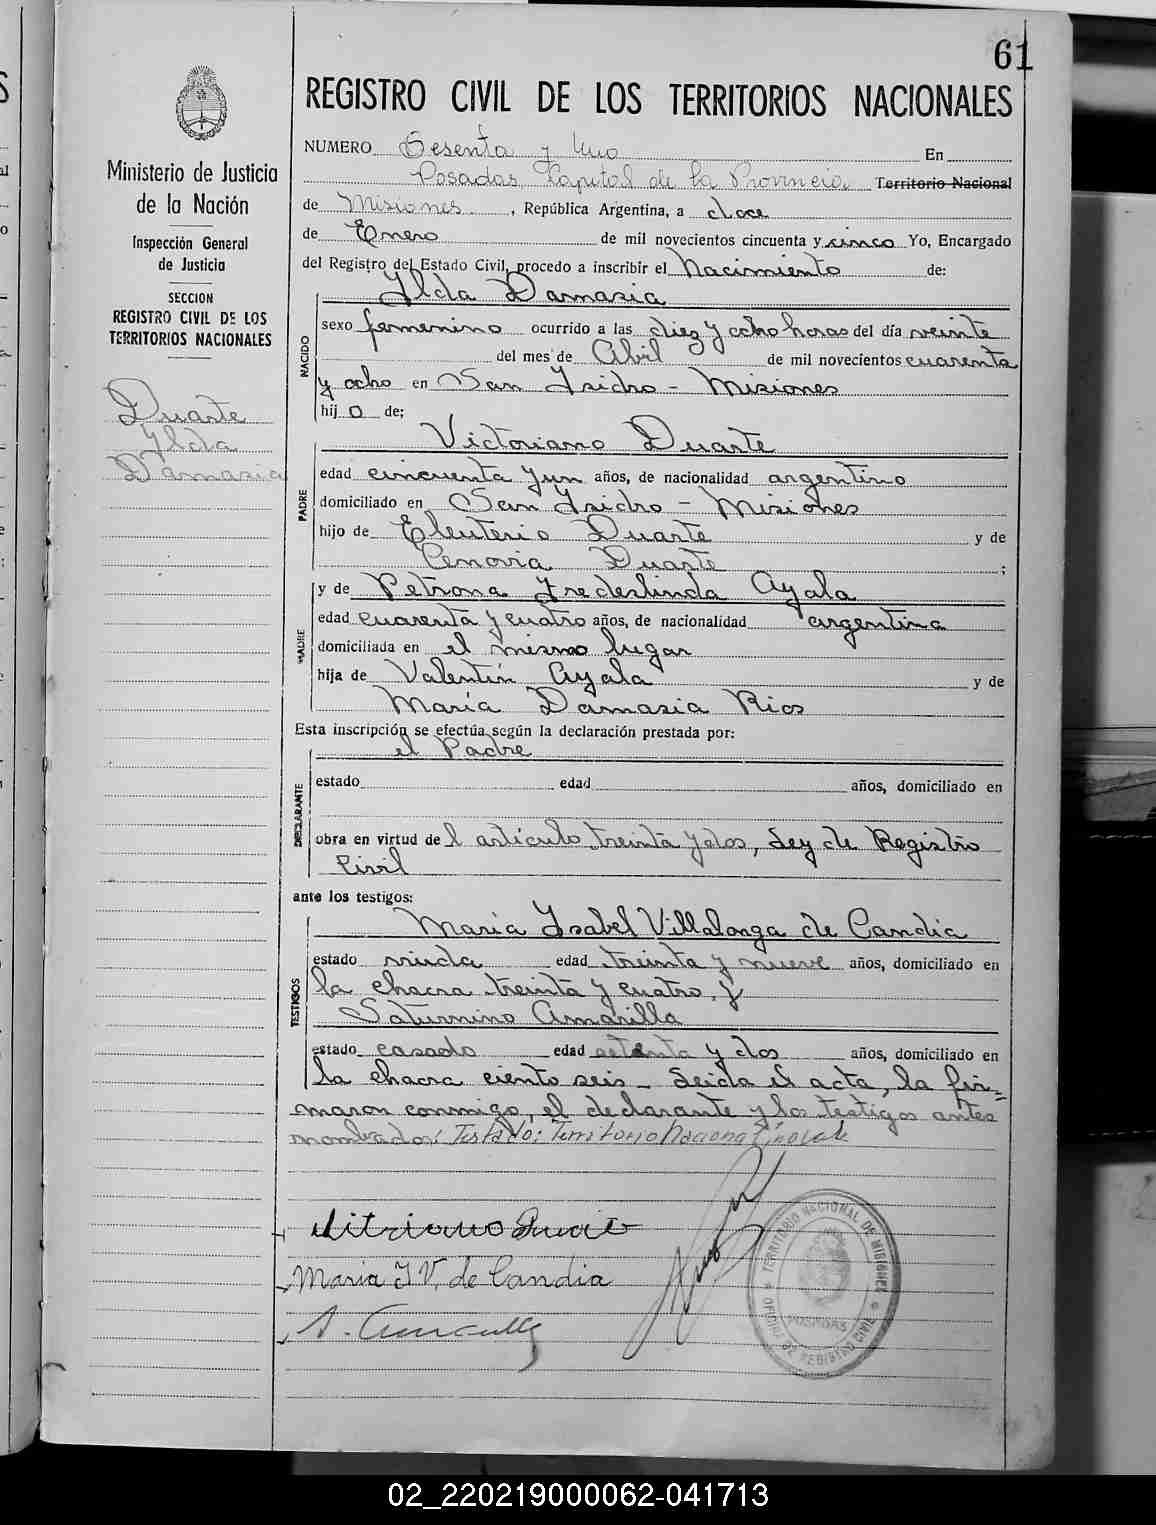 61
REGISTRO CIVIL DE LOS TERRITORIOS NACIONALES
Ministerio de Justicia
de la Nación
Inspección General
de Justicia
SECCION
REGISTRO CIVIL DE LOS
TERRITORIOS NACIONALES
Duarte
Ylda
Damasia
NUMERO Sesenta y Uno En
Posadas, Capital de la Provincia Territorio Nacional
de Misiones, República Argentina, a doce
de Enero de mil novecientos cincuenta y cinco Yo, Encargado
del Registro del Estado Civil, procedo a inscribir el Nacimiento de:
Ylda Damasia
NACIDO
sexo femenino ocurrido a las diez y ocho horas del día veinte
del mes de Abril de mil novecientos cuarenta
y ocho en San Isidro - Misiones
hij a de;
Victoriano Duarte
PADRE
edad cincuenta y un años, de nacionalidad argentino
domiciliado en San Isidro - Misiones
hijo de Eleuterio Duarte y de
Cenovia Duarte ;
y de Petrona Fredeslinda Ayala
MADRE
edad cuarenta y cuatro años, de nacionalidad argentina
domiciliada en el mismo lugar
hija de Valentín Ayala y de
María Damasia Rios
Esta inscripción se efectúa según la declaración prestada por:
el Padre
DECLARANTE
estado edad años, domiciliado en
obra en virtud de l artículo treinta y dos, Ley de Registro
Civil
ante los testigos:
María Ysabel Villalonga de Candia
TESTIGOS
estado viuda edad treinta y nueve años, domiciliado en
la chacra treinta y cuatro, y
Saturnino Amarilla
estado casado edad setenta y dos años, domiciliado en
la chacra ciento seis - Leida el acta, la fir=
maron conmigo, el declarante y los testigos antes
nombrados: Testado: Territorio Nacional
Maria Y V. de Candia
TERRITORIO NACIONAL DE MISIONES
POSADAS
OFICINA DE REGISTRO CIVIL
02_220219000062-041713